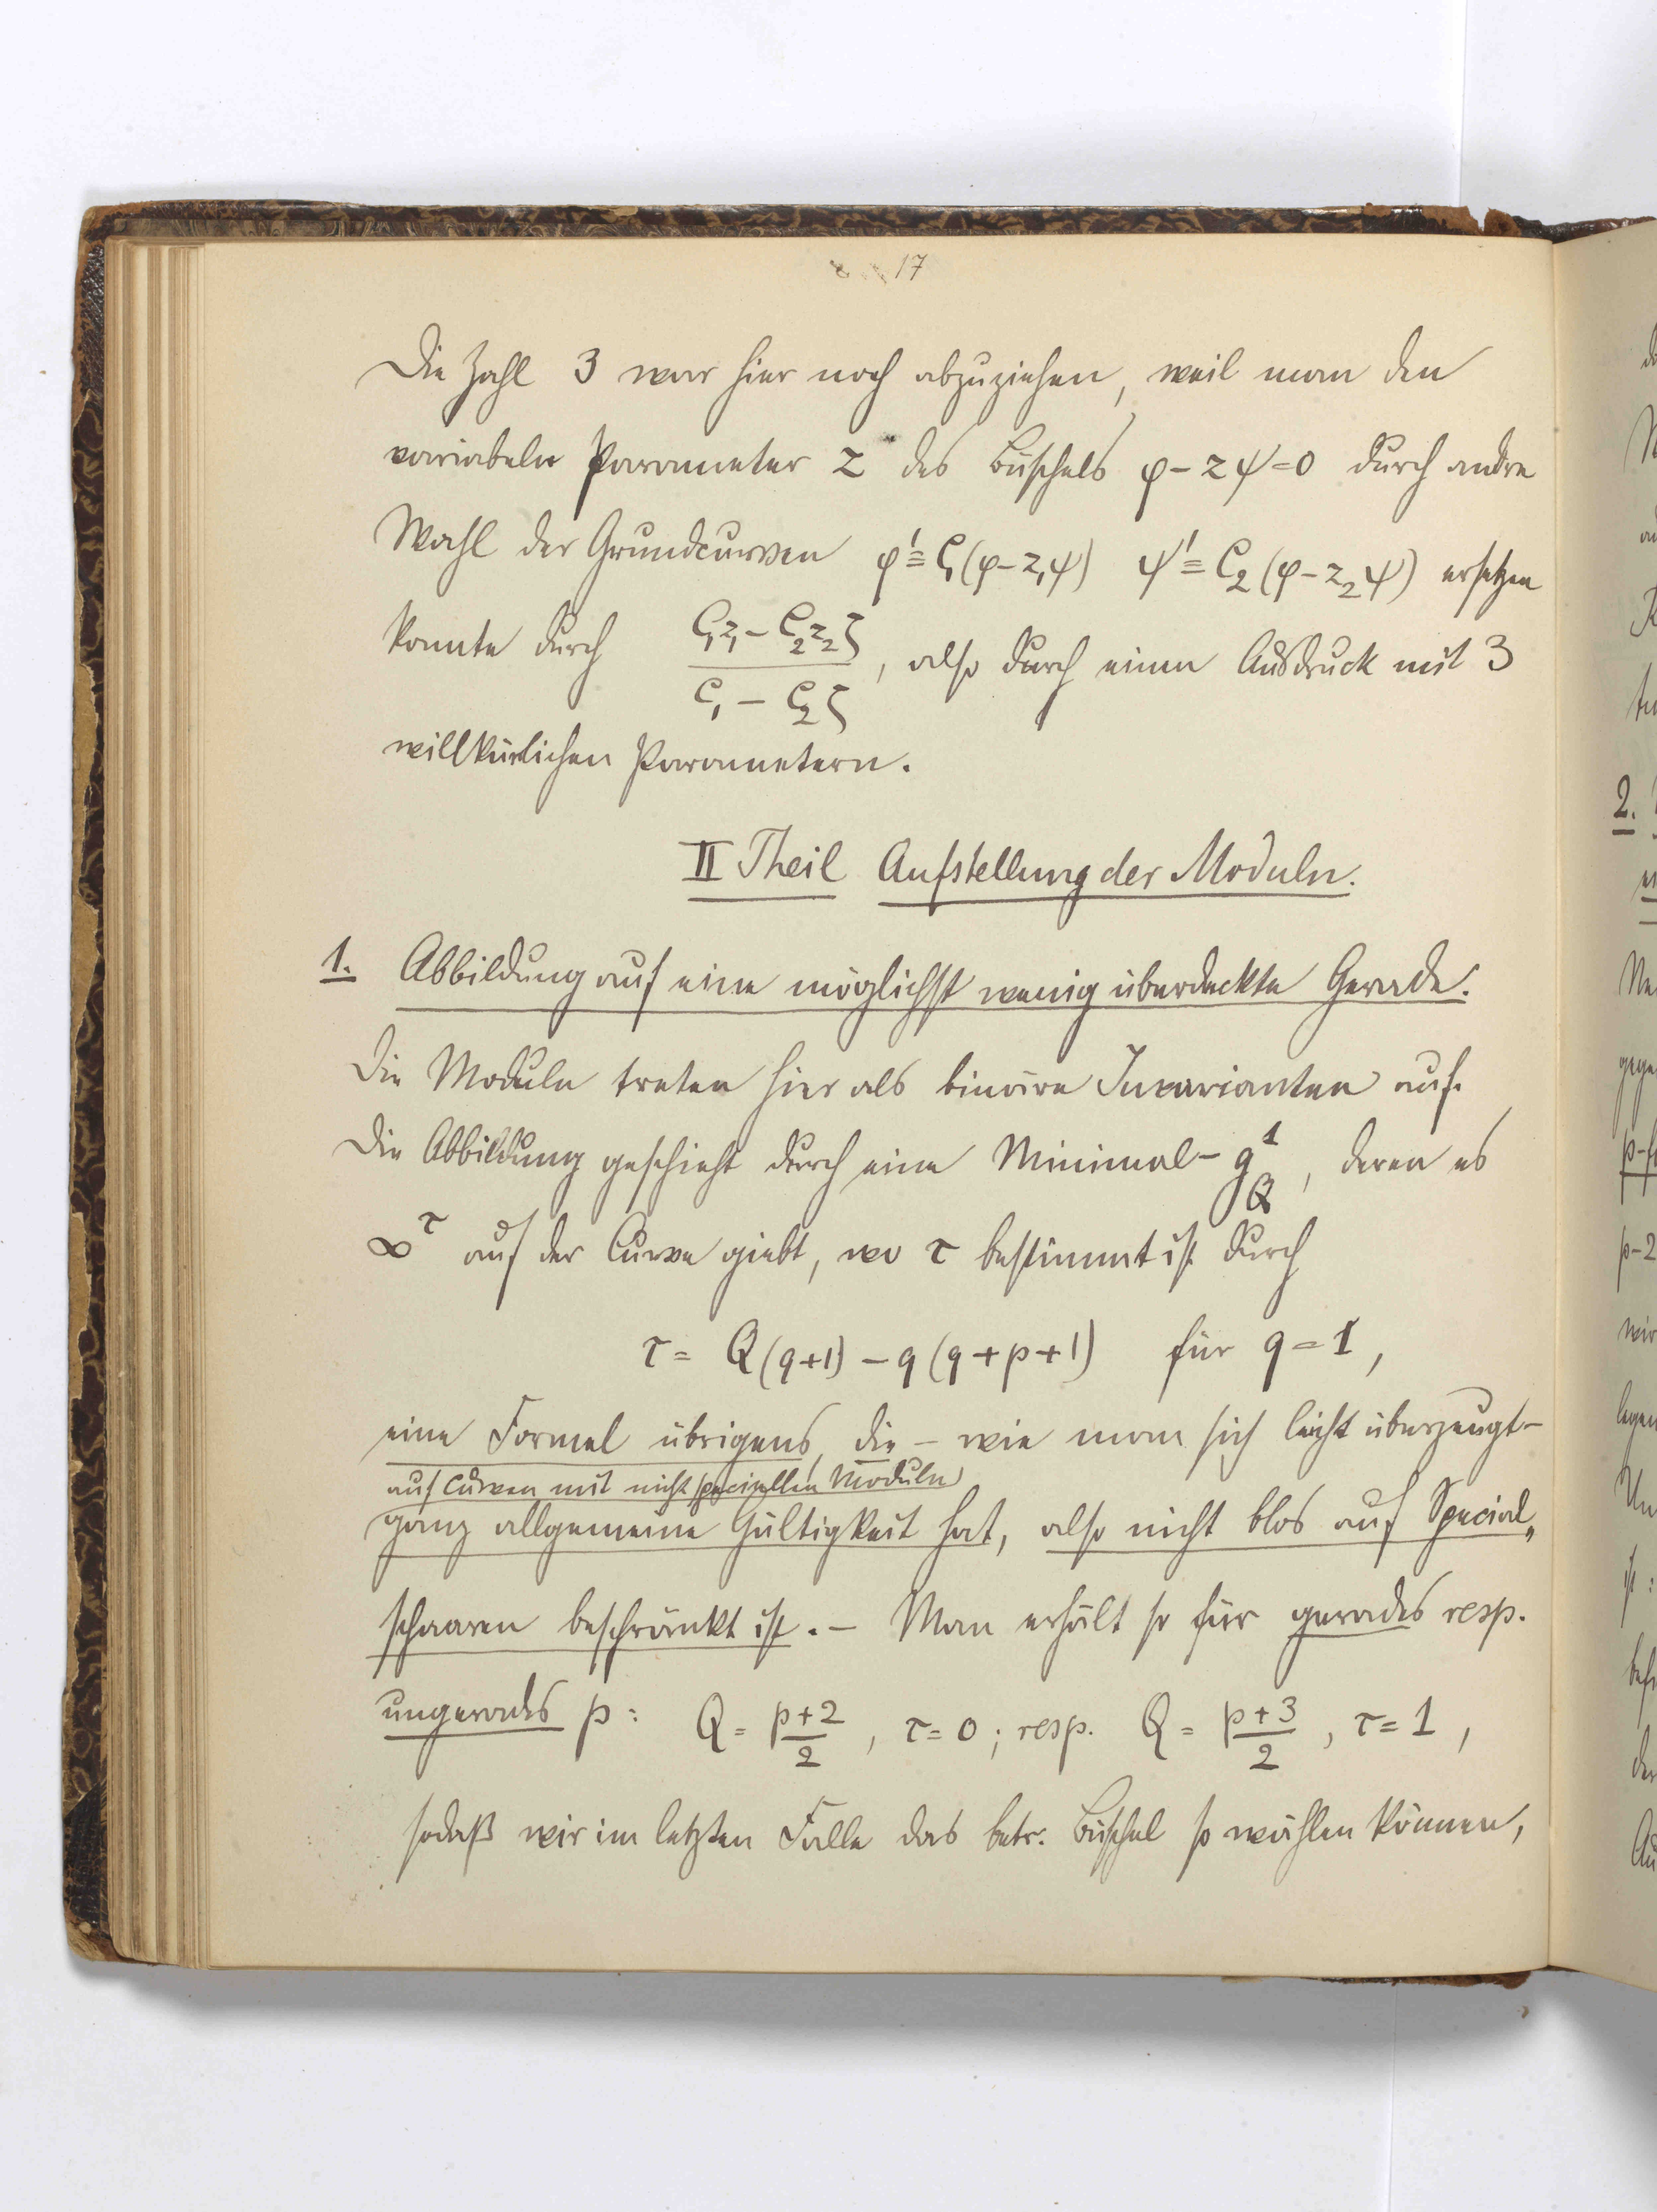 17
Die Zahl 3 war hier noch abzuziehen, weil man den
variabeln Parameter z des Büschels φ - zψ = 0 durch andre
Wahl der Grundcurven φ' ≡ C₁(φ - z₁ψ) ψ' ≡ C₂(φ - z₂ψ) ersetzen
konnte durch (C₁z₁ - C₂z₂ζ)/(C₁ - C₂ζ), also durch einen Ausdruck mit 3
willkürlichen Parametern.
II Theil Aufstellung der Moduln.
1. Abbildung auf eine möglichst wenig überdeckte Gerade.
Die Moduln treten hier als binäre Invarianten auf.
Die Abbildung geschieht durch eine Minimal-g¹_Q, deren es
∞^τ auf der Curve giebt, wo τ bestimmt ist durch
τ = Q(q+1) - q(q+p+1) für q = 1,
eine Formel übrigens, die - wie man sich leicht überzeugt -
auf Curven mit nicht speciellen Moduln
ganz allgemeine Gültigkeit hat, also nicht blos auf Special„
schaaren beschränkt ist. - Man erhält so für gerades resp.
ungerades p: Q = (p+2)/2, τ = 0; resp. Q = (p+3)/2, τ = 1,
sodaß wir im letzten Falle das betr. Büschel so wählen können,
2.
p-2